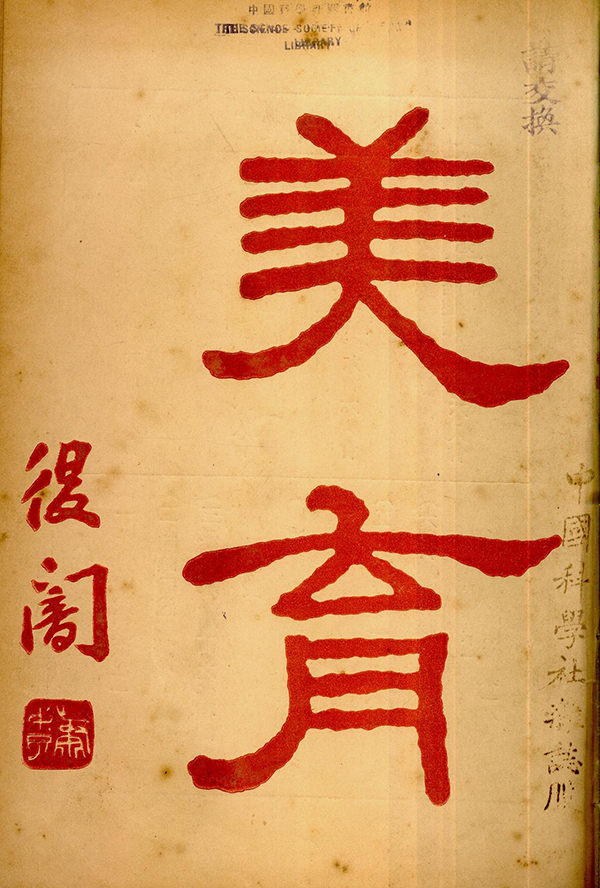 中國科學社圖書館
THE SCIENCE SOCIETY OF
LIBRARY
請交換
中國科學社雜誌
美育
退闇